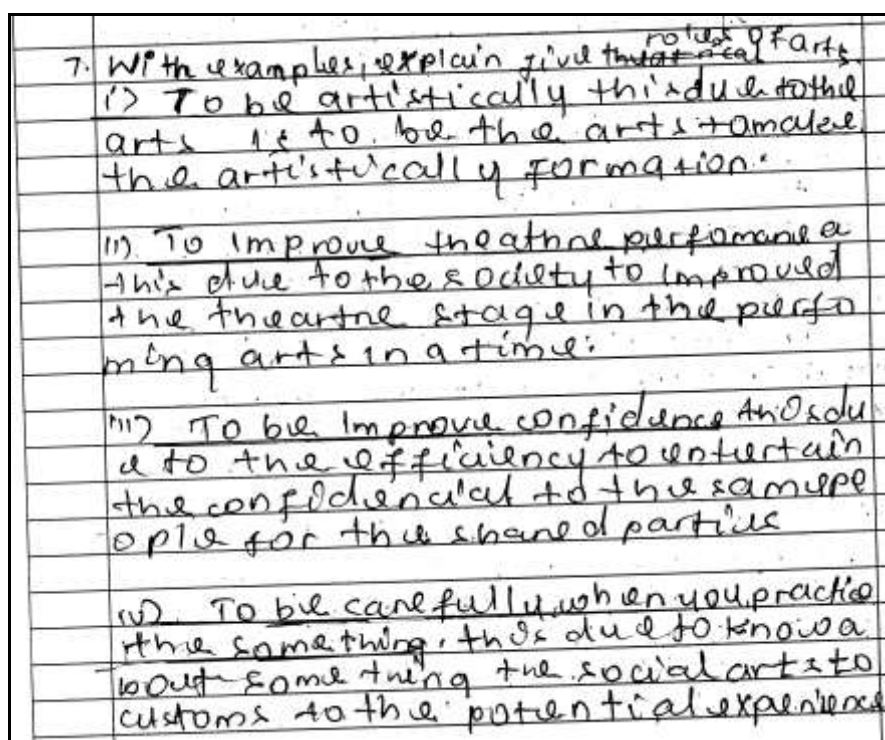 7. With examples, explain give roles of arts
i) To be artistically this due to the
arts is to be the arts to make
the artistically formation.
ii) To improve theathre perfomance
this due to the society to improved
the theartre stage in the perfo
ming arts in a time.
iii) To be improve confidence this du
e to the efficiency to entertain
the confidencial to the same pe
ople for the shared parties
iv) To be carefully when you practice
the something. this due to know a
bout some thing the social arts to
customs to the potential experience